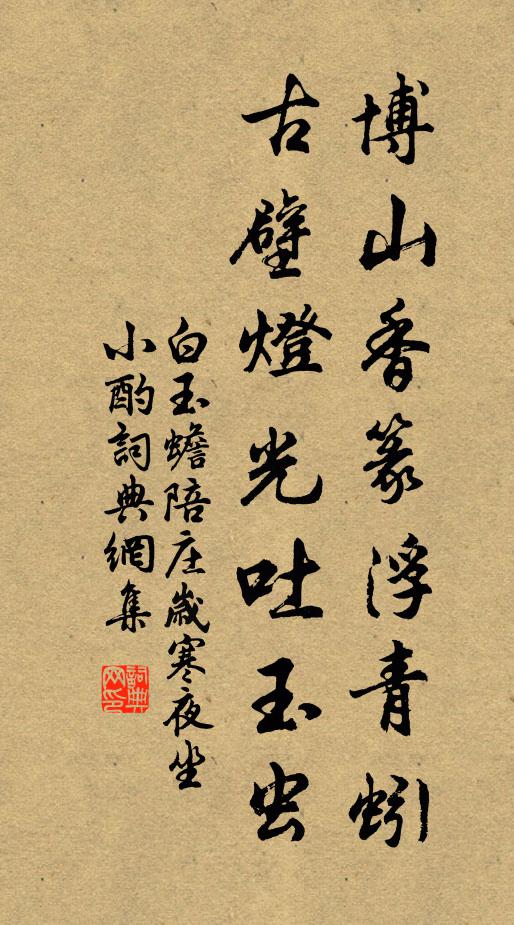 博山香篆浮青蚓
古壁燈光吐玉虫
白玉蟾陪庄歲寒夜坐
小酌詞典網集
詞典
网印